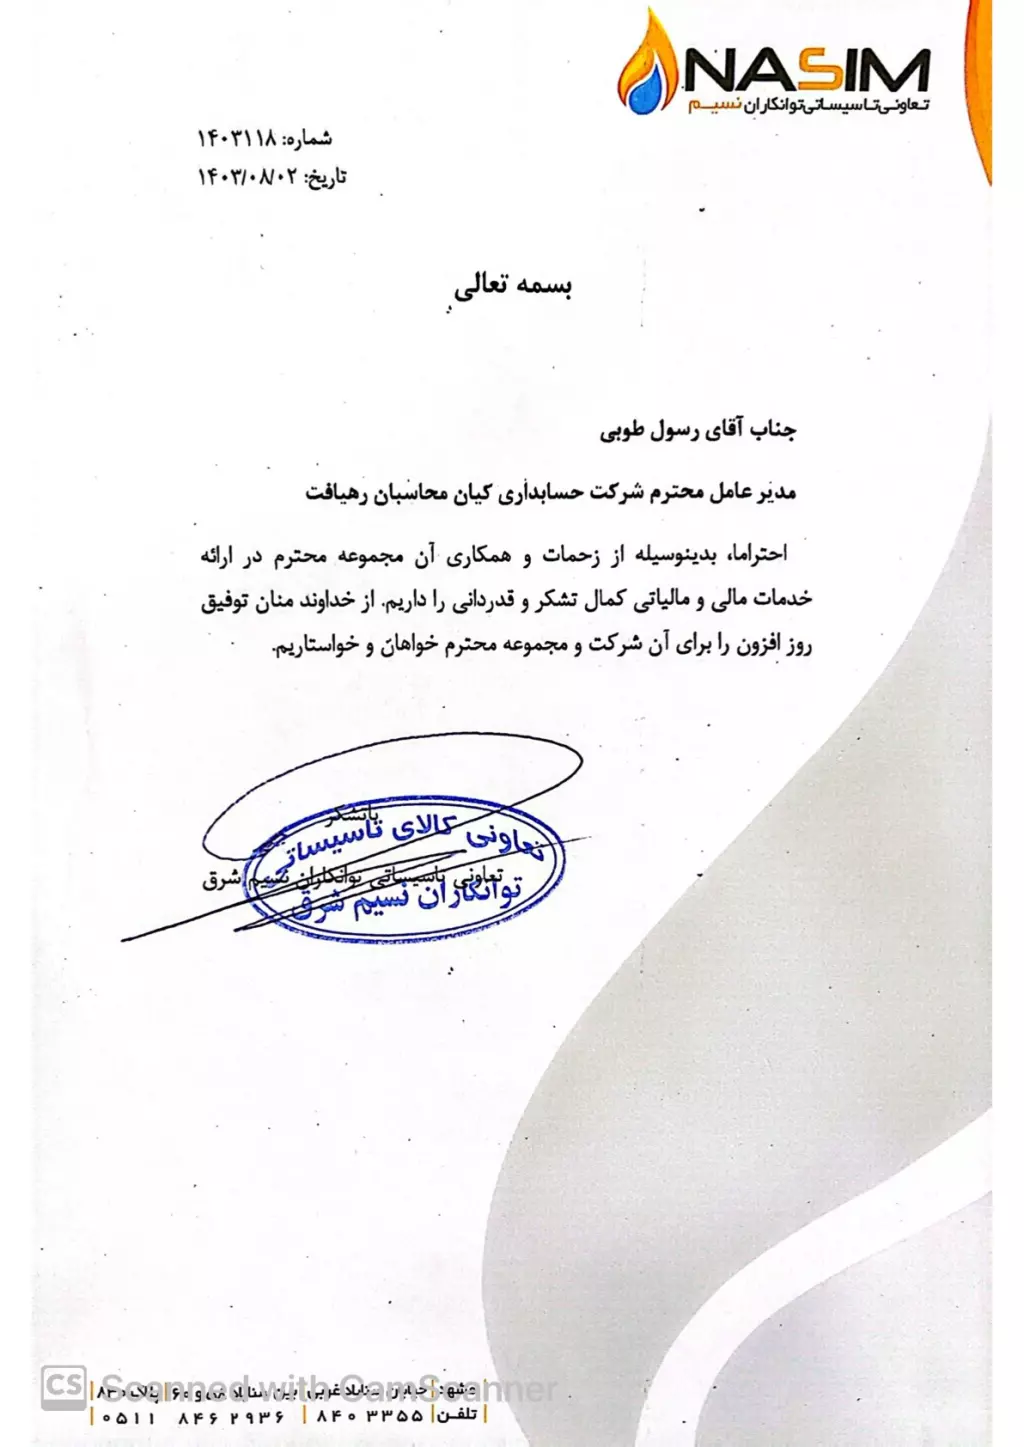 NASIM
تعاونی تاسیساتی توانکاران نسیم
شماره: ۱۴۰۳۱۱۸
تاریخ: ۱۴۰۳/۰۸/۰۲
بسمه تعالی
جناب آقای رسول طوبی
مدیر عامل محترم شرکت حسابداری کیان محاسبان رهیافت
احتراما، بدینوسیله از زحمات و همکاری آن مجموعه محترم در ارائه
خدمات مالی و مالیاتی کمال تشکر و قدردانی را داریم. از خداوند منان توفیق
روز افزون را برای آن شرکت و مجموعه محترم خواهان و خواستاریم.
باتشکر
تعاونی کالای تاسیساتی
تعاونی تاسیساتی توانکاران نسیم شرق
توانکاران نسیم شرق
مشهد | خیابان سنابادغربی | بین سناباد و ۶۰ | پلاک ۸۳۰
تلفن | ۸۴۰ ۳۳۵۵ | ۰۵۱۱ ۸۴۶ ۲۹۳۶
CS Scanned with CamScanner